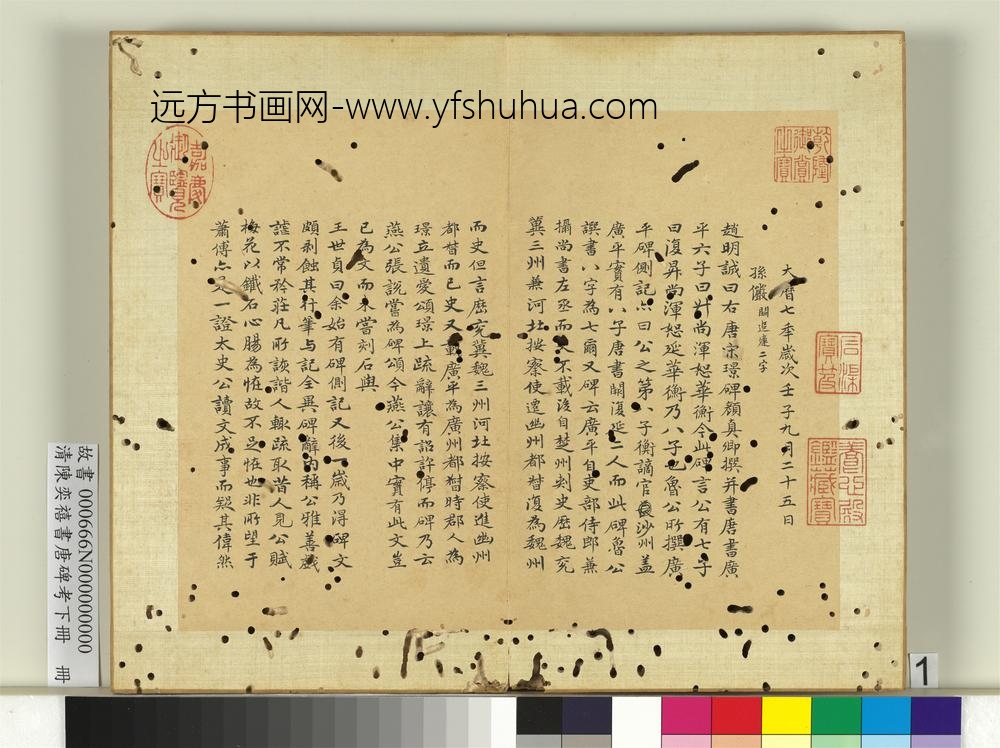 远方书画网-www.yfshuhua.com
乾隆御賞之寶
嘉慶御覽之寶
石渠寶笈
養心殿鑑藏寶
大曆七年歲次壬子九月二十五日
孫儼 闕追建二字
趙明誠曰右唐宋璟碑顏真卿撰并書唐書廣
平六子曰昇尚渾恕華衡今此碑言公有七子
曰復昇尚渾恕延華衡乃八子也魯公所撰廣
平碑側記亦曰公之第八子衡謫官沙州蓋
廣平實有八子唐書闕復延二人而此碑魯公
譔書八字為七爾又碑云廣平自吏部侍郎兼
攝尚書左丞而史不載後自楚州刺史歷魏兗
冀三州兼河北按察使遷幽州都督復為魏州
而史但言歷兗冀魏三州河北按察使進幽州
都督而已史又載廣平為廣州都督時郡人為
璟立遺愛頌璟上疏辭讓有詔許停而碑乃云
燕公張說嘗為碑頌今燕公集中實有此文豈
已為文而未嘗刻石與
王世貞曰余始有碑側記又後一歲乃得碑文
頗剥蝕其行筆与記全異碑辭內稱公雅善戲
謔不常矜莊凡所詼諧人輒疏取昔人見公賦
梅花以鐵石心腸為怪故不足怪也非所望于
蕭傅亦是一證太史公讀文成事而疑其偉然
故書 000666N000000000
清陳奕禧書唐碑考下冊 冊
1